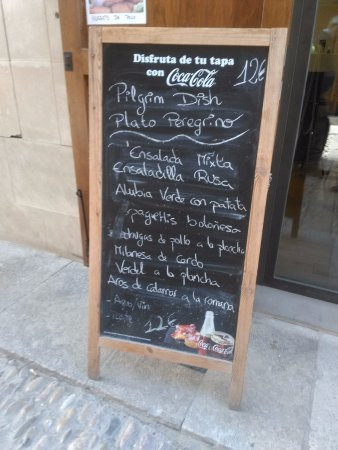 Disfruta de tu tapa
con Coca-Cola 12€
Pilgrim Dish
Plato Peregrino
Ensalada Mixta
Ensaladilla Rusa
Alubia Verde con patata
spaguettis boloñesa
de pollo a la plancha
Milanesa de Cerdo
Verdel a la plancha
Aros de Calamar a la romana
- Agua/vin
12€